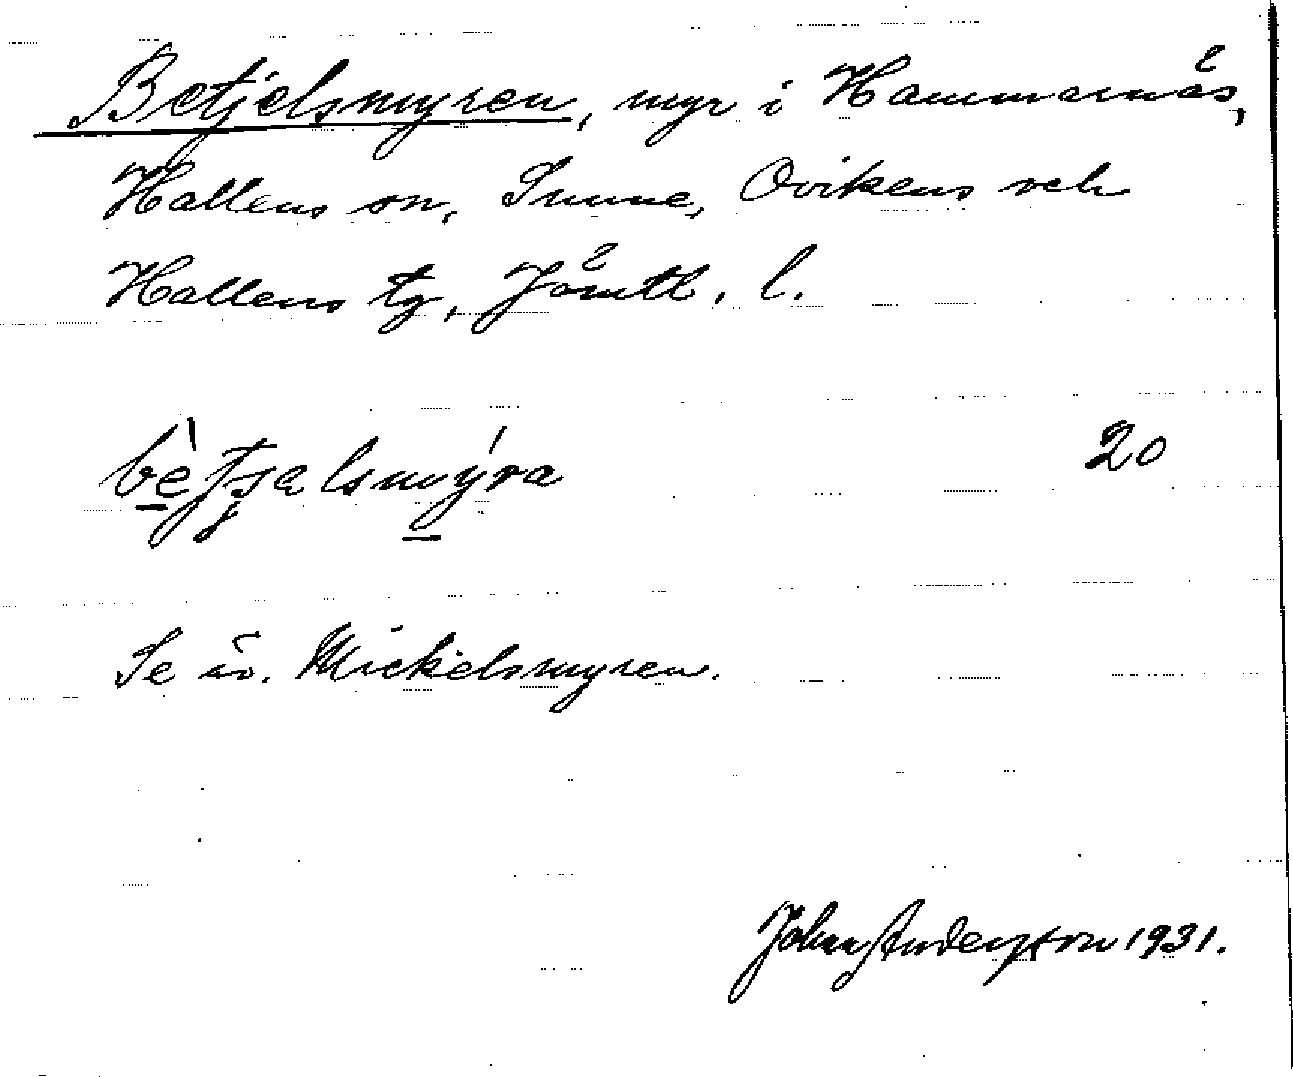 Betjelsmyren, myr i Hammarnäs,
Hallens sn, Sunne, Ovikens och
Hallens tg, Jämtl. l.
20
Se äv. Mickelsmyren.
John Andersson 1931.